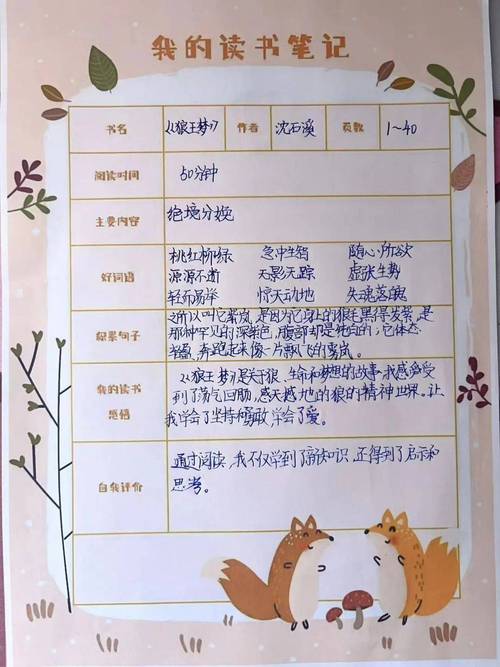 我的读书笔记
书名 《狼王梦》 作者 沈石溪 页数 1~40
阅读时间 50分钟
主要内容 绝境分娩
好词语 桃红柳绿 急中生智 随心所欲
源源不断 无影无踪 虚张生势
轻而易举 惊天动地 失魂落魄
积累句子 之所以叫它紫岚,是因为它身上的狼毛黑得发紫,是
那种罕见的深紫色,腹部却是纯白的,它体态
轻盈,奔跑起来像一片飘飞的雾岚。
我的读书
感悟
《狼王梦》是关于狼、生命和梦想的故事,我感受
到了荡气回肠,感天撼地的狼的精神世界。让
我学会了坚持和勇敢,学会了爱。
自我评价 通过阅读,我不仅学到了新知识,还得到了启示和
思考。